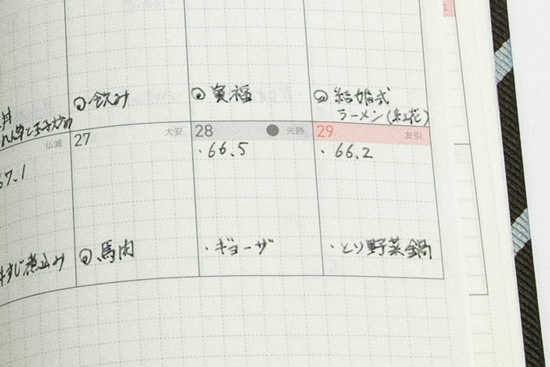 飲み
寅福
結婚式
ラーメン(紅花)
丼
仏滅
27 大安
28 先勝
29 友引
67.1
・66.5
・66.2
すじ煮込み
馬肉
・ギョーザ
・とり野菜鍋